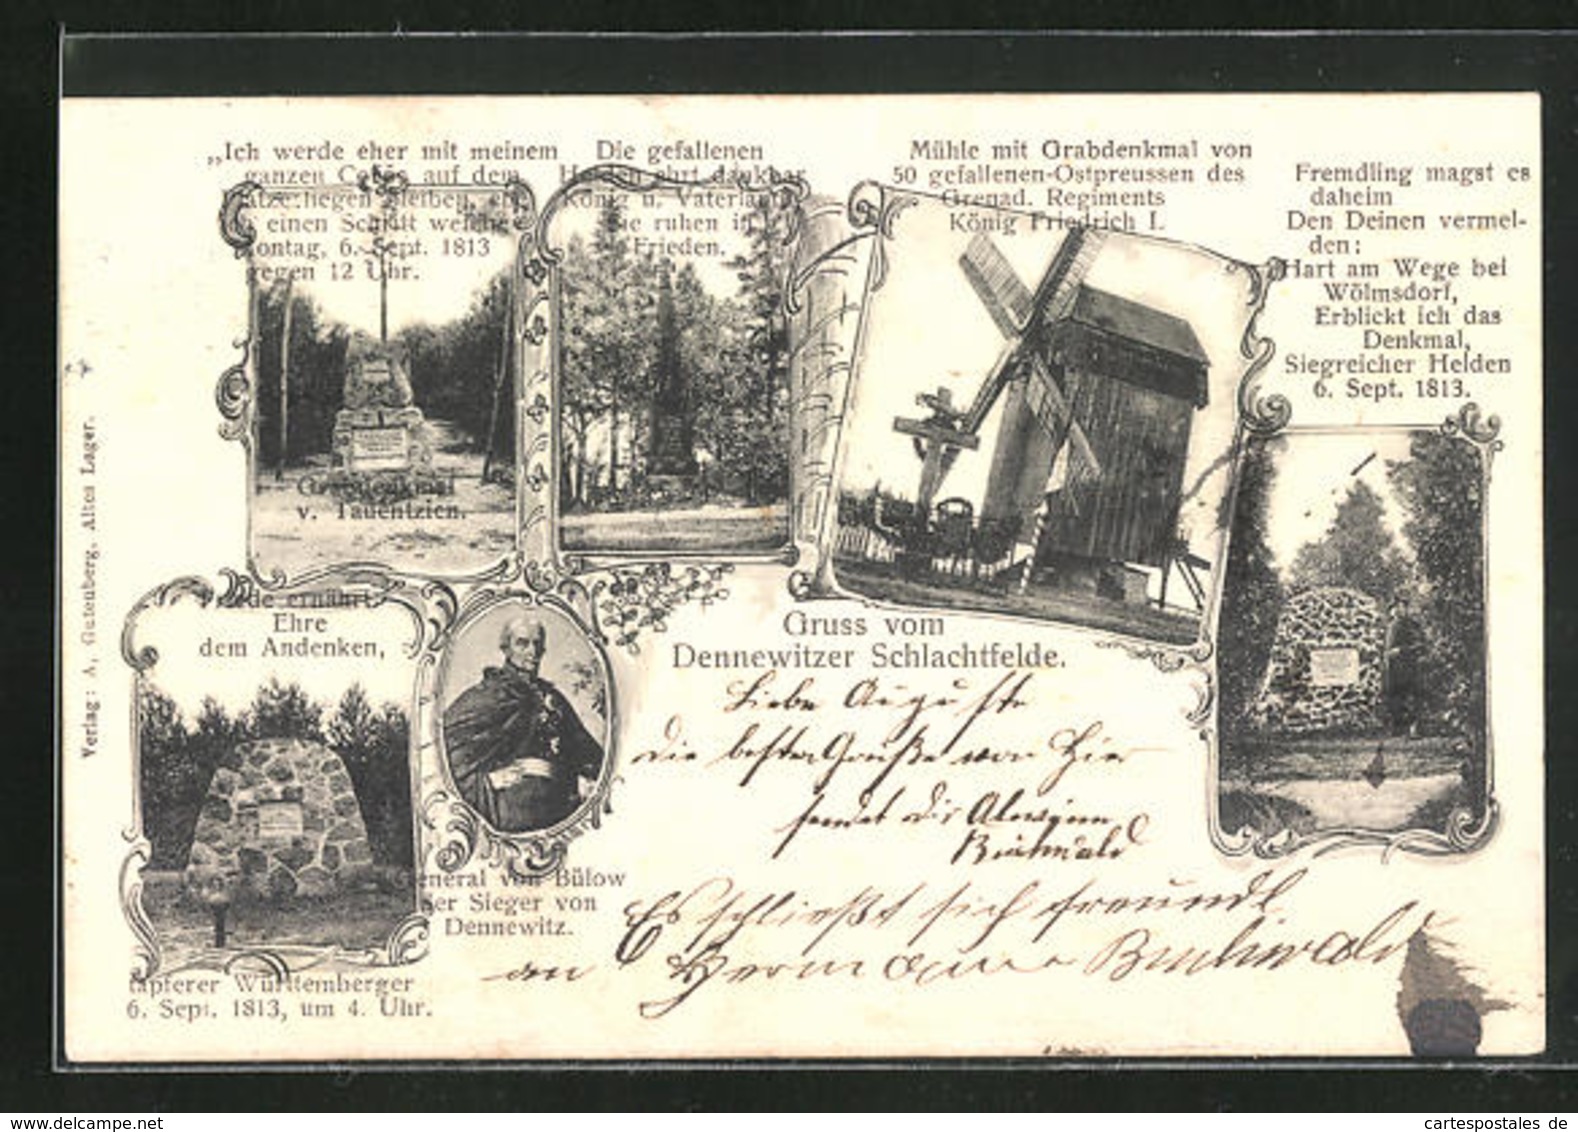 „Ich werde eher mit meinem
ganzen Corps auf dem
Platze liegen bleiben, er
einen Schritt weiche
Montag, 6. Sept. 1813
gegen 12 Uhr.
Die gefallenen
Helden ehrt dankbar
König u. Vaterland
Sie ruhen in
Frieden.
Mühle mit Grabdenkmal von
50 gefallenen-Ostpreussen des
Grenad. Regiments
König Friedrich I.
Fremdling magst es
daheim
Den Deinen vermel-
den:
Hart am Wege bei
Wölmsdorf,
Erblickt ich das
Denkmal,
Siegreicher Helden
6. Sept. 1813.
v. Tauentzien.
Friede ernährt
Ehre
dem Andenken,
tapferer Württemberger
6. Sept. 1813, um 4. Uhr.
General von Bülow
der Sieger von
Dennewitz.
Gruss vom
Dennewitzer Schlachtfelde.
Liebe Auguste
die besten Grüße von hier
sendet dir
Buchwald
Es schließt sich freundl.
an Buchwald
Verlag: A. Gutenberg, Altes Lager.
www.delcampe.net
cartespostales de